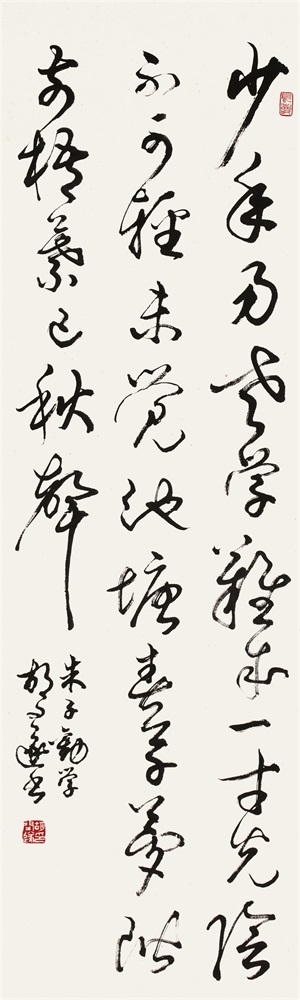 少年易老学难成一寸光阴
不可轻未觉池塘春草梦阶
前梧叶已秋声
朱子劝学
胡问遂书